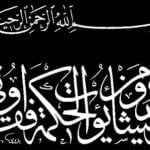 الله الرحمن الرحيم
من يشاء ومن يؤت الحكمة فقد أوتي